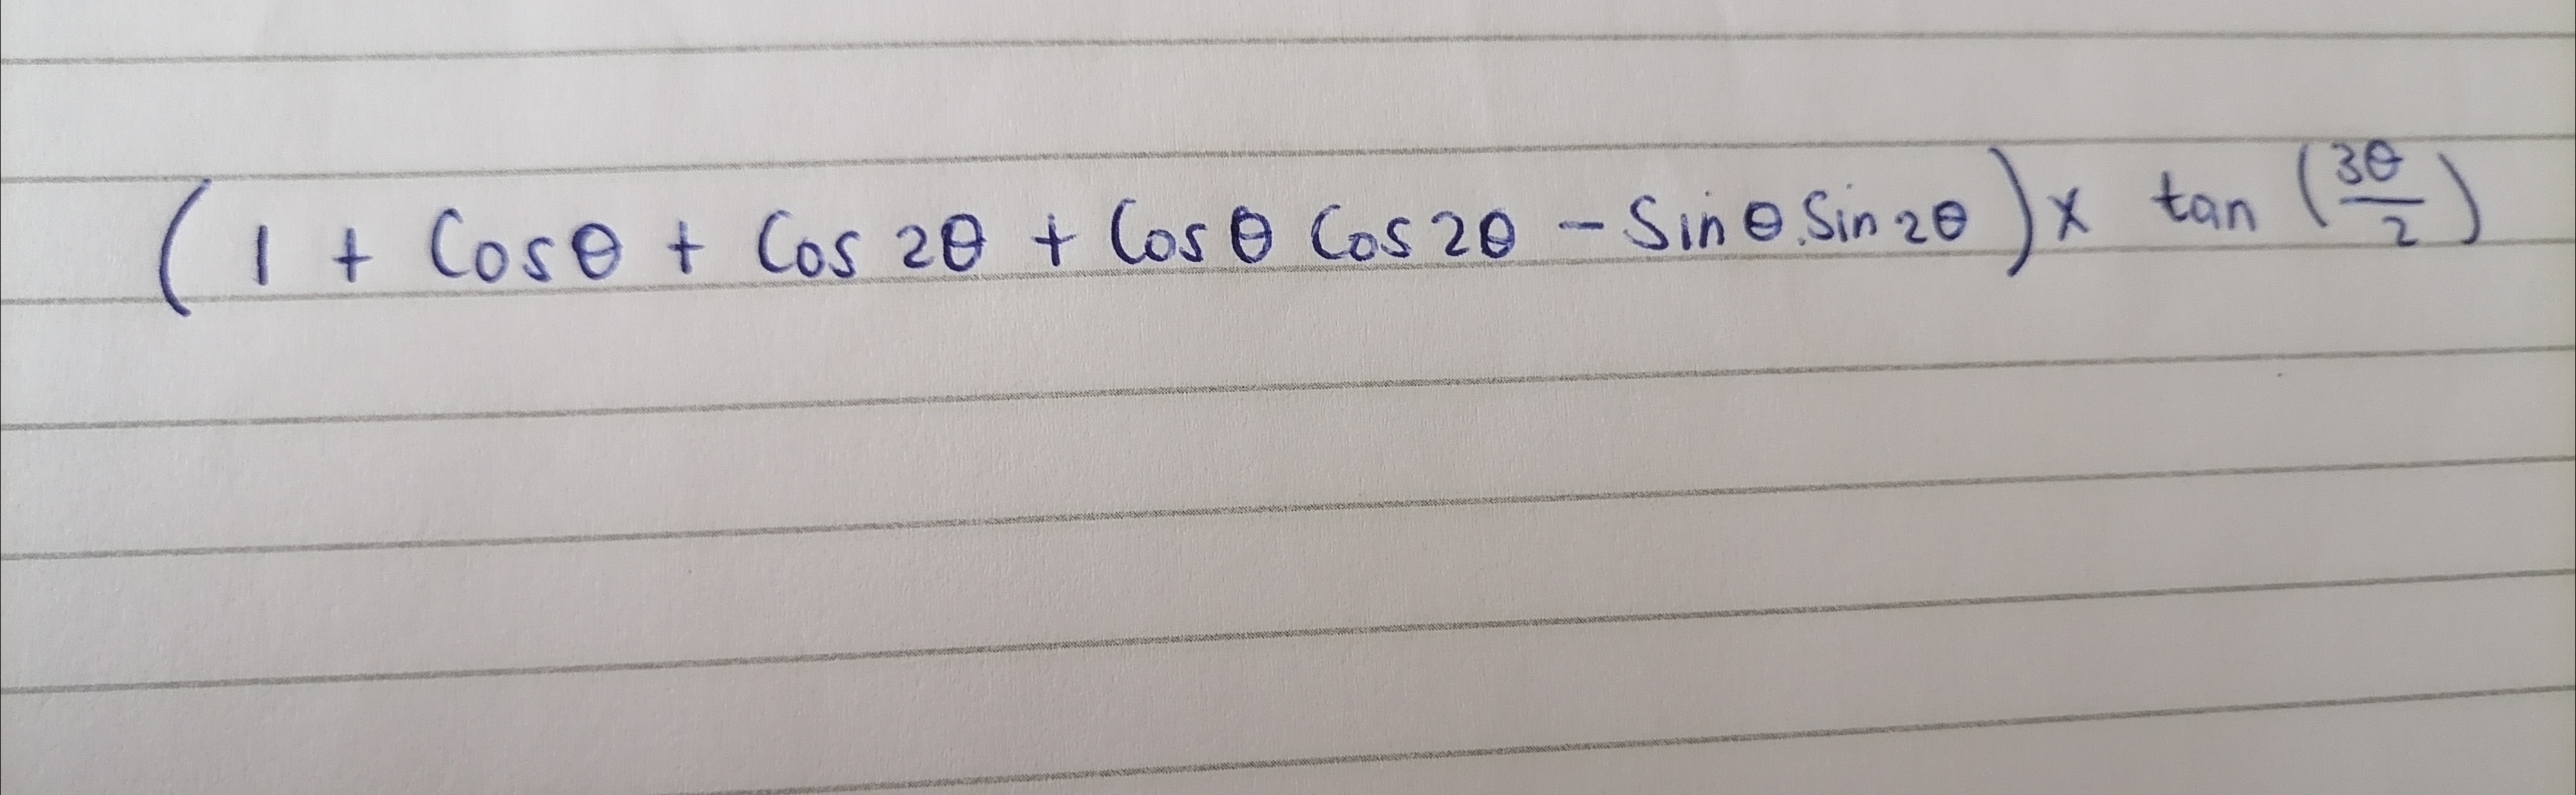 (1 + Cosθ + Cos 2θ + Cos θ Cos 2θ - Sin θ . Sin 2θ) × tan (3θ/2)